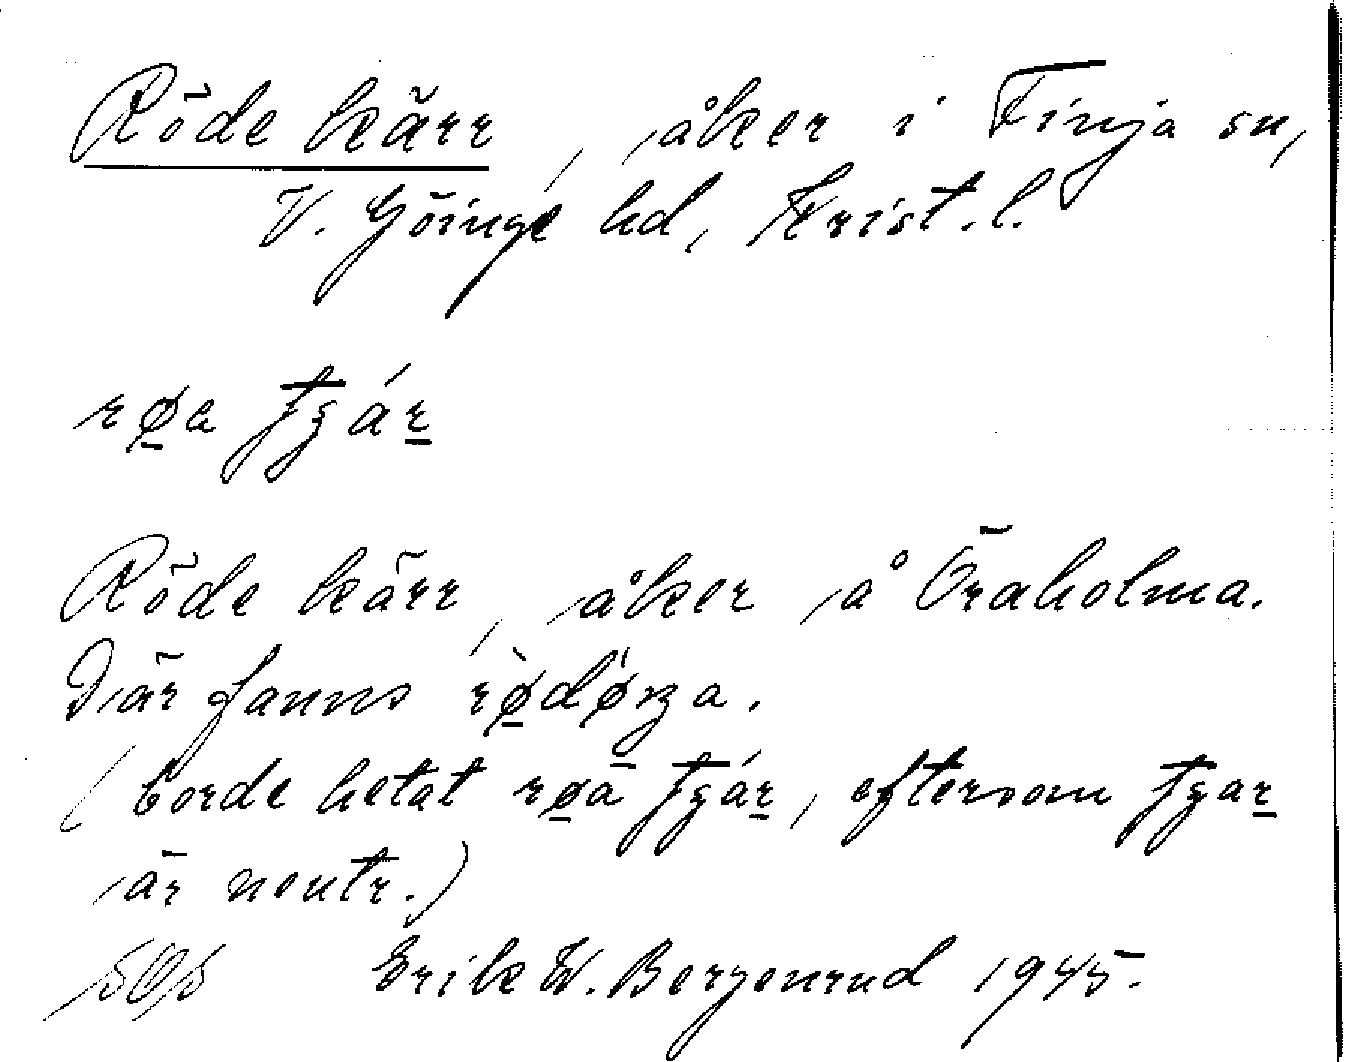 Röde kärr, åker i Finja sn,
V. Göinge hd, Krist. l.
røa tʒár
Röde kärr, åker å Öraholma.
Där fanns rødørʒa.
(borde hetat røa tʒár, eftersom tʒar
är neutr.)
Erik W. Bergenrud 1945.